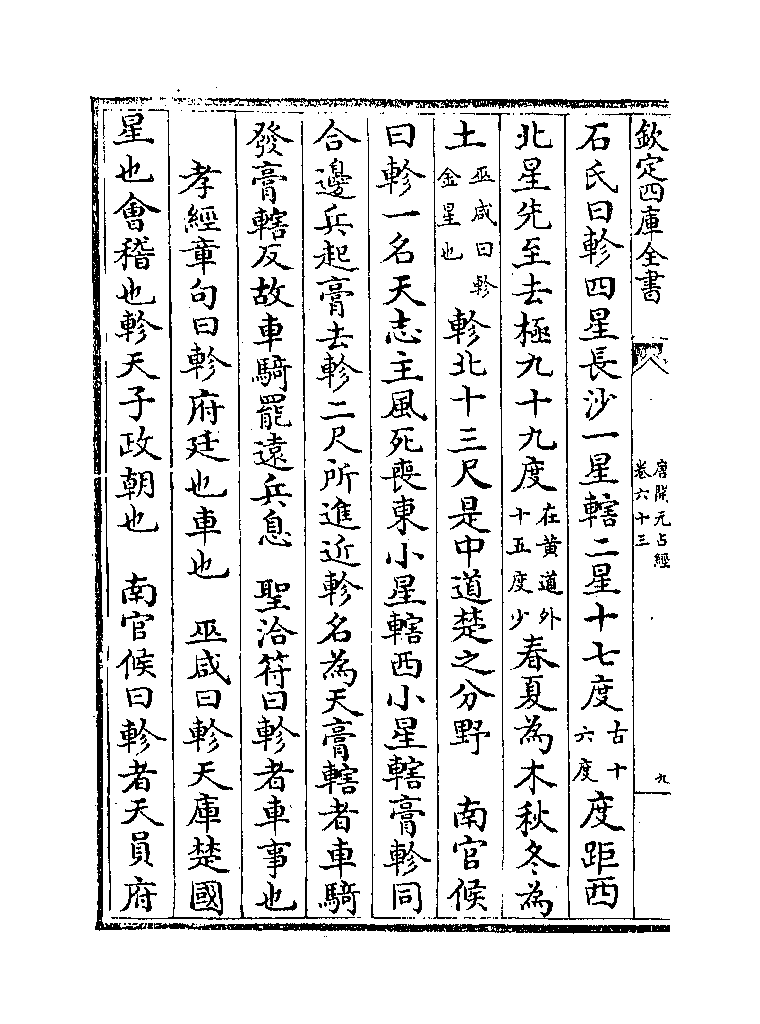 欽定四庫全書
唐開元占經
卷六十三
九
石氏曰軫四星長沙一星轄二星十七度古十六度度距西
北星先至去極九十九度在黄道外十五度少春夏為木秋冬為
土巫咸曰軫金星也軫北十三尺是中道楚之分野　南官候
曰軫一名天志主風死喪東小星轄西小星轄膏軫同
合邊兵起膏去軫二尺所進近軫名為天膏轄者車騎
發膏轄反故車騎罷遠兵息　聖洽符曰軫者車事也
孝經章句曰軫府廷也車也　巫咸曰軫天庫楚國
星也會稽也軫天子政朝也　南官候曰軫者天員府